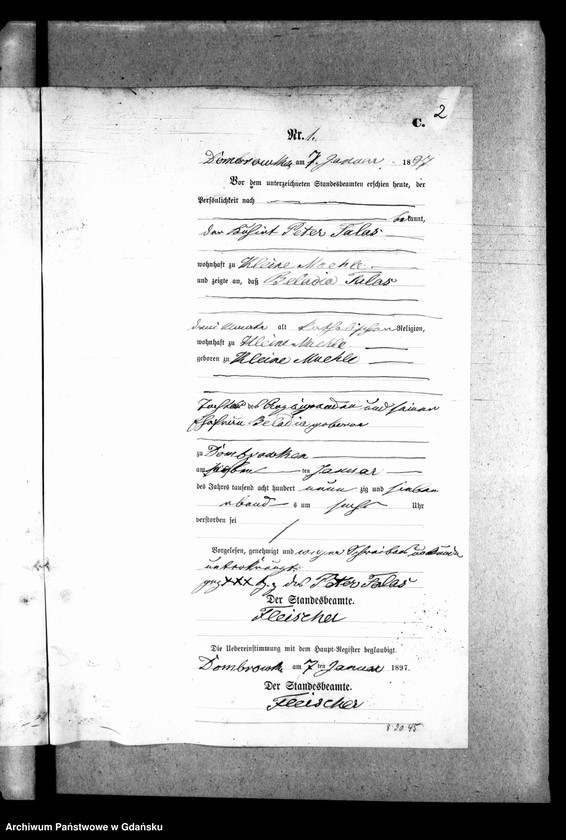 2
C.
Nr. 1.
Dombrowken am 7. Januar 1897
Vor dem unterzeichneten Standesbeamten erschien heute, der
Persönlichkeit nach
bekannt,
der Peter Talas
wohnhaft zu Kleine Muehle
und zeigte an, daß Beladia Talas
drei Monate alt katholischer Religion,
wohnhaft zu Kleine Muehle
geboren zu Kleine Muehle
Tochter des Anzeigenden und seiner
Ehefrau Beladia geborene
zu Dombrowken
am ten Januar
des Jahres tausend acht hundert neun zig und sieben
abends um sechs Uhr
verstorben sei
Vorgelesen, genehmigt und wegen Schreibens
unterkreuzt
gez XXX Hz des Peter Talas
Der Standesbeamte.
Fleischer
Die Uebereinstimmung mit dem Haupt-Register beglaubigt.
Dombrowken am 7 ten Januar 1897.
Der Standesbeamte.
Fleischer
8 20 45
Archiwum Państwowe w Gdańsku